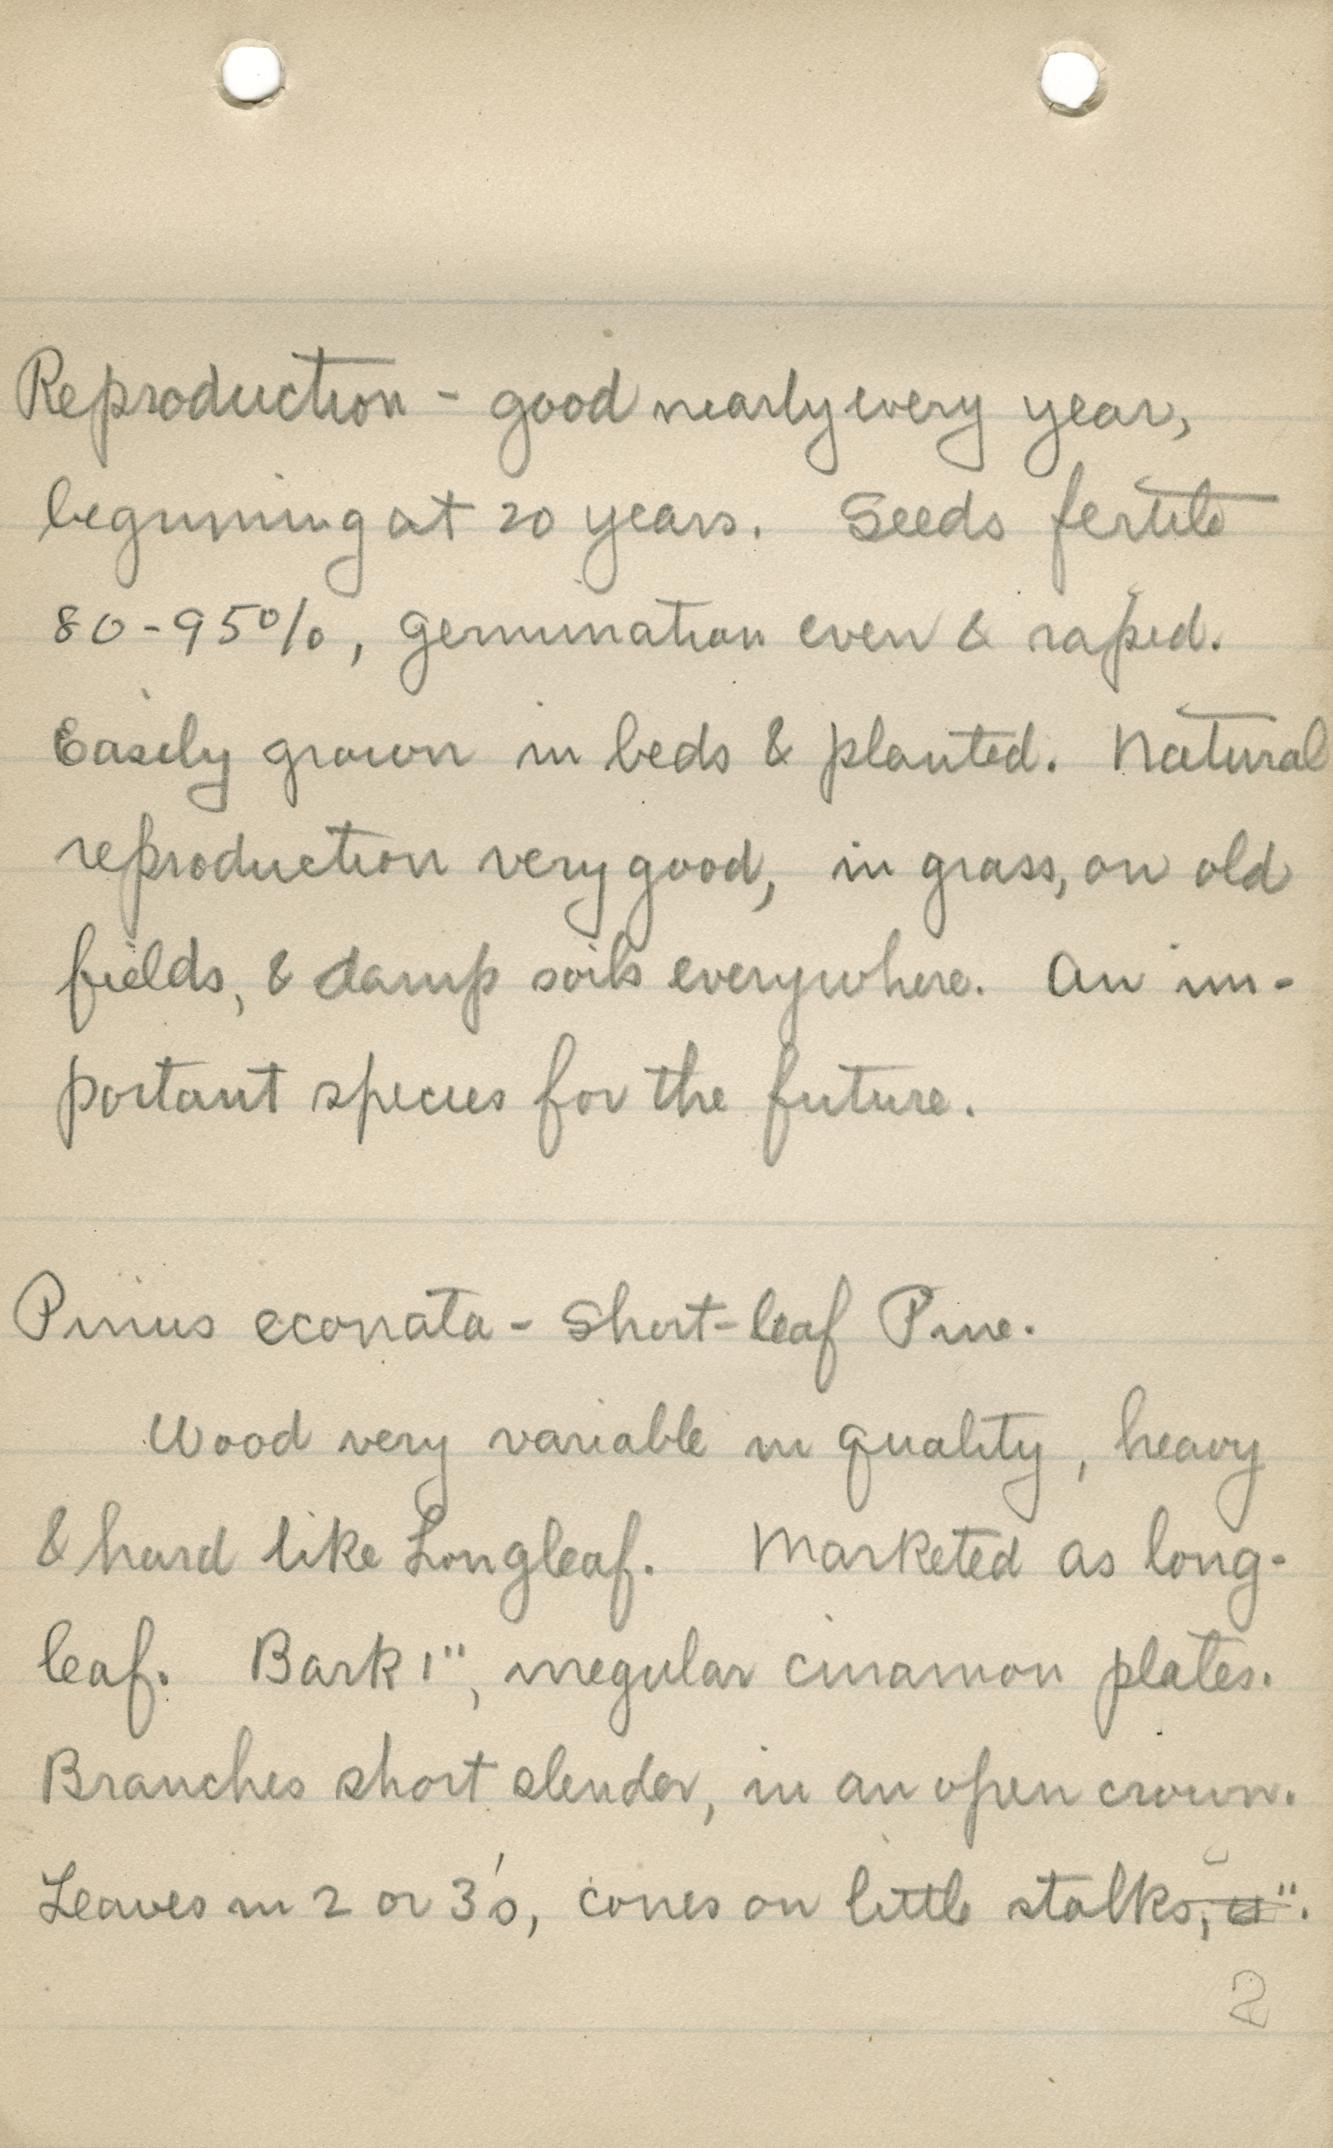 Reproduction - good nearly every year,
beginning at 20 years. Seeds fertile
80-95%, germination even & rapid.
Easily grown in beds & planted. Natural
reproduction very good, in grass, on old
fields, & damp soils everywhere. An im-
portant species for the future.
Pinus econata - Short-leaf Pine.
Wood very variable in quality, heavy
& hard like Longleaf. Marketed as long-
leaf. Bark 1", irregular cinamon plates.
Branches short slender, in an open crown.
Leaves in 2 or 3's, cones on little stalks,
2